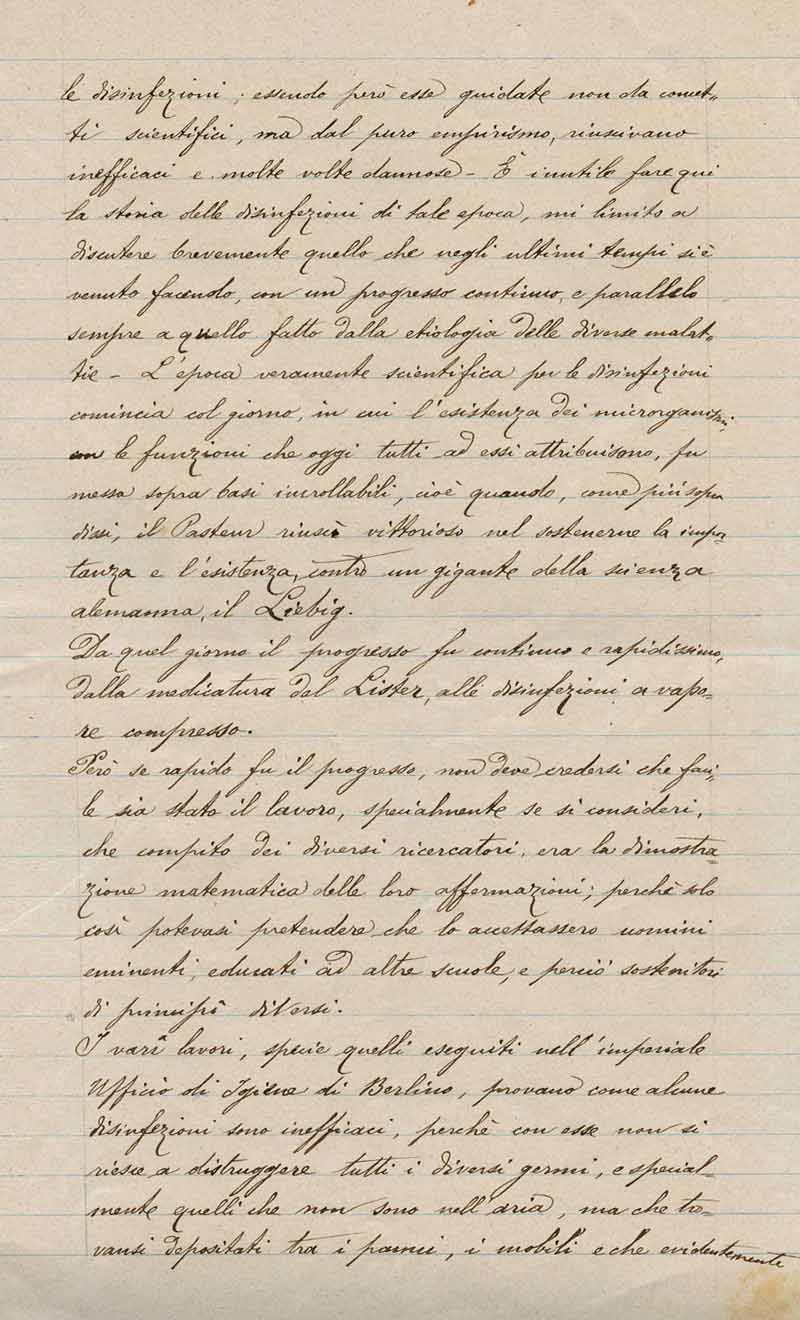 le disinfezioni; essendo però esse guidate non da concet-
ti scientifici, ma dal puro empirismo, riuscivano
inefficaci e molte volte dannose - È inutile fare qui
la storia delle disinfezioni di tale epoca, mi limito a
discutere brevemente quello che negli ultimi tempi si è
venuto facendo, con un progresso continuo, e parallelo
sempre a quello fatto dalla etiologia delle diverse malat-
tie - L'epoca veramente scientifica per le disinfezioni
comincia col giorno, in cui l'esistenza dei microrganismi,
le funzioni che oggi tutti ad essi attribuiscono, fu
messa sopra basi incrollabili, cioè quando, come più sopra
dissi, il Pasteur riuscì vittorioso nel sostenerne la impor-
tanza e l'esistenza, contro un gigante della scienza
alemanna, il Liebig.
Da quel giorno il progresso fu continuo e rapidissimo,
dalla medicatura del Lister, alle disinfezioni a vapo-
re compresso.
Però se rapido fu il progresso, non deve credersi che faci-
le sia stato il lavoro, specialmente se si consideri,
che compito dei diversi ricercatori, era la dimostra
zione matematica delle loro affermazioni; perchè solo
così potevasi pretendere che lo accettassero uomini
eminenti, educati ad altre scuole, e perciò sostenitori
di principî diversi.
I varî lavori, specie quelli eseguiti nell'imperiale
Ufficio di Igiene di Berlino, provano come alcune
disinfezioni sono inefficaci, perchè con esse non si
riesce a distruggere tutti i diversi germi, e special-
mente quelli che non sono nell'aria, ma che tro-
vansi depositati tra i panni, i mobili e che evidentemente